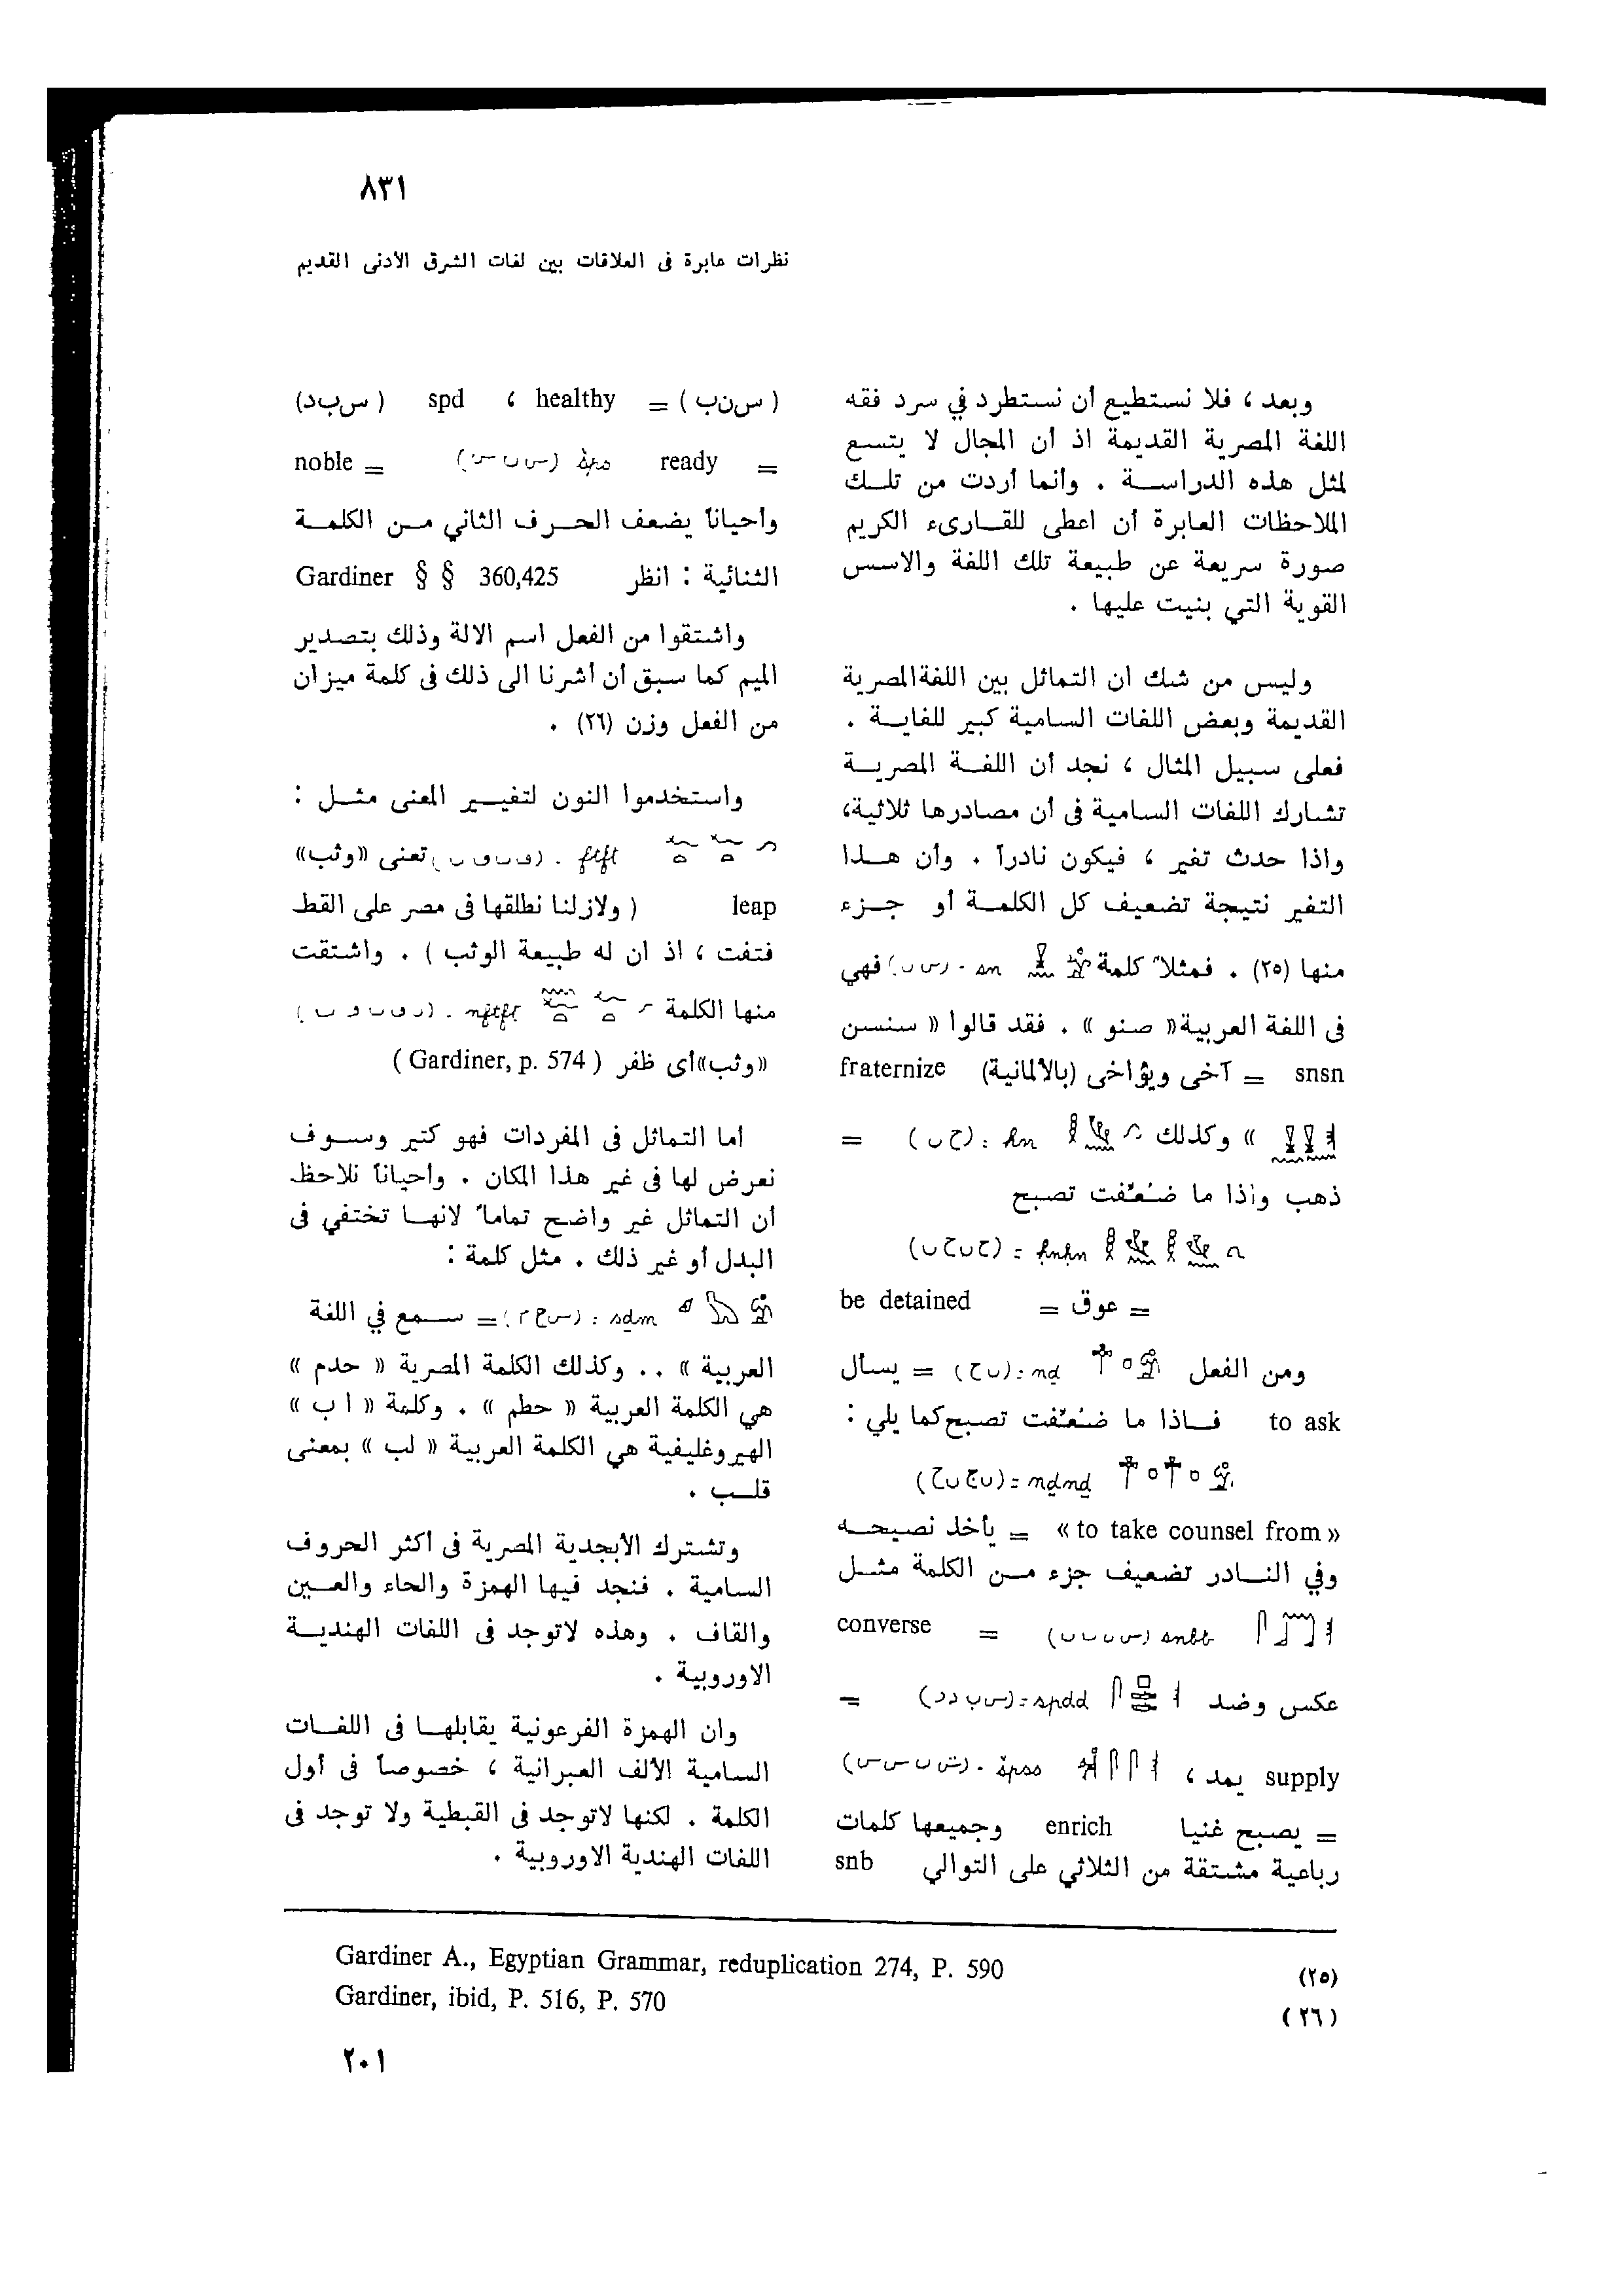 ٨٣١
نظرات عابرة فى العلاقات بين لغات الشرق الأدنى القديم
وبعد ، فلا نستطيع أن نستطرد في سرد فقه
اللغة المصرية القديمة اذ أن المجال لا يتسع
لمثل هذه الدراسة . وأنما أردت من تلك
الملاحظات العابرة أن اعطى للقارىء الكريم
صورة سريعة عن طبيعة تلك اللغة والاسس
القوية التي بنيت عليها .
وليس من شك ان التماثل بين اللغة المصرية
القديمة وبعض اللغات السامية كبير للغاية .
فعلى سبيل المثال ، نجد أن اللغة المصرية
تشارك اللغات السامية فى أن مصادرها ثلاثية،
واذا حدث تغير ، فيكون نادراً . وأن هذا
التغير نتيجة تضعيف كل الكلمة أو جزء
منها (٢٥) . فمثلاً كلمة sn . (س ن) فهي
فى اللغة العربية « صنو » . فقد قالوا « سنسن
snsn = آخى ويؤاخى (بالالمانية) fraternize
» وكذلك ḥn : (ح ن) =
ذهب واذا ما ضُعِّفت تصبح
ḥnḥn = : (ح ن ح ن)
= عوق = be detained
ومن الفعل nḏ : (ن ج) = يسأل
to ask فاذا ما ضُعِّفت تصبح كما يلي :
nḏnḏ = : (ن ج ن ج)
«to take counsel from» = يأخذ نصيحه
وفي النادر تضعيف جزء من الكلمة مثل
snbb (س ن ب ب) = converse
عكس وضد spdd = : (س ب د د) =
supply يمد ، špss . (ش ب س س)
= يصبح غنيا enrich وجميعها كلمات
رباعية مشتقة من الثلاثي على التوالي snb
( س ن ب ) = healthy ، spd ( س ب د)
= ready šps (س ب س) = noble
وأحياناً يضعف الحرف الثاني من الكلمة
الثنائية : انظر Gardiner § § 360,425
واشتقوا من الفعل اسم الالة وذلك بتصدير
الميم كما سبق أن أشرنا الى ذلك فى كلمة ميزان
من الفعل وزن (٢٦) .
واستخدموا النون لتغيير المعنى مثل :
ftft . (ف ت ف ت) تعنى «وثب»
leap ( ولازلنا نطلقها فى مصر على القط
فتفت ، اذ ان له طبيعة الوثب ) . واشتقت
منها الكلمة nftft . (ن ف ت ف ت)
«وثب» أى ظفر ( Gardiner, p. 574 )
أما التماثل فى المفردات فهو كثير وسوف
نعرض لها فى غير هذا المكان . وأحياناً نلاحظ
أن التماثل غير واضح تماماً لانها تختفي فى
البدل أو غير ذلك . مثل كلمة :
sḏm : (س ج م) = سمع في اللغة
العربية » .. وكذلك الكلمة المصرية « حدم »
هي الكلمة العربية « حطم » . وكلمة « ا ب »
الهيروغليفية هي الكلمة العربية « لب » بمعنى
قلب .
وتشترك الأبجدية المصرية فى أكثر الحروف
السامية . فنجد فيها الهمزة والحاء والعين
والقاف . وهذه لاتوجد فى اللغات الهندية
الاوروبية .
وان الهمزة الفرعونية يقابلها فى اللغات
السامية الألف العبرانية ، خصوصاً فى أول
الكلمة . لكنها لاتوجد فى القبطية ولا توجد فى
اللغات الهندية الاوروبية .
(٢٥) Gardiner A., Egyptian Grammar, reduplication 274, P. 590
(٢٦) Gardiner, ibid, P. 516, P. 570
٢٠١